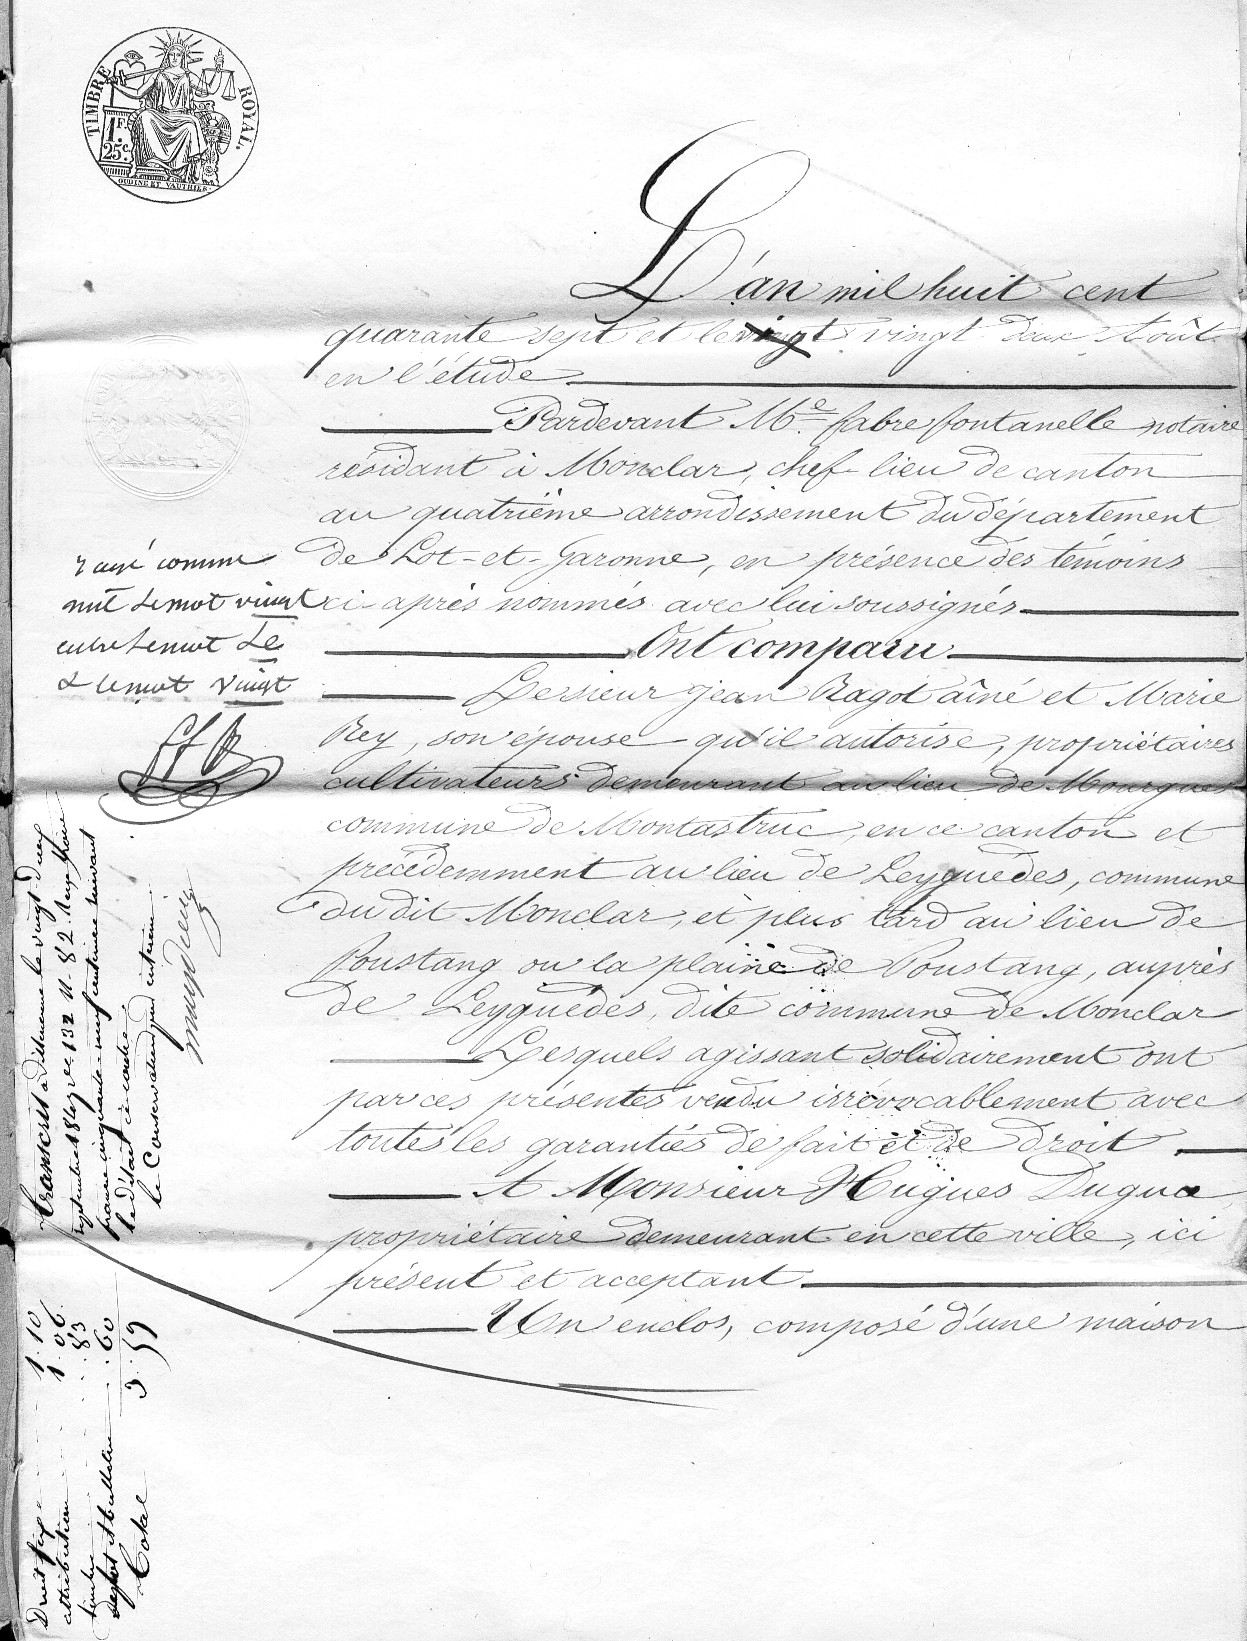 TIMBRE ROYAL.
1F.
25c.
OUDINE ET VAUTHIER.
L'an mil huit cent
quarante sept et le vingt vingt deux Août
en l'étude
Pardevant Me. fabre fontanelle notaire
résidant à Monclar, chef-lieu de canton
au quatrième arrondissement du département
de Lot-et-Garonne, en présence des témoins
ci-après nommés avec lui soussignés
Ont comparu
Le sieur Jean Ragot aîné et Marie
Rey, son épouse qu'il autorise, propriétaires
cultivateurs demeurant au lieu de Mourgues
commune de Montastruc, en ce canton et
précédemment au lieu de Leyguèdes, commune
du dit Monclar, et plus tard au lieu de
Poustang ou la plaine de Poustang, auprès
de Leyguèdes, dite commune de Monclar
Lesquels agissant solidairement ont
par ces présentes vendu irrévocablement avec
toutes les garanties de fait et de droit.
A Monsieur Hugues Dugue
propriétaire demeurant en cette ville, ici
présent et acceptant
Un enclos, composé d'une maison
rayé comme
nul le mot vingt
entre le mot Le
& le mot vingt
ffR
transcrit à Villeneuve le vingt deux
septembre 1847 vol 132 n. 82. Reçu trois
francs cinquante neuf centimes suivant
le détail ci contre.
le Conservateur par interim
Droit fixe 1. 10
attribution 1. 06
timbre 83
dépôt et bulletin 60
Total 3. 59